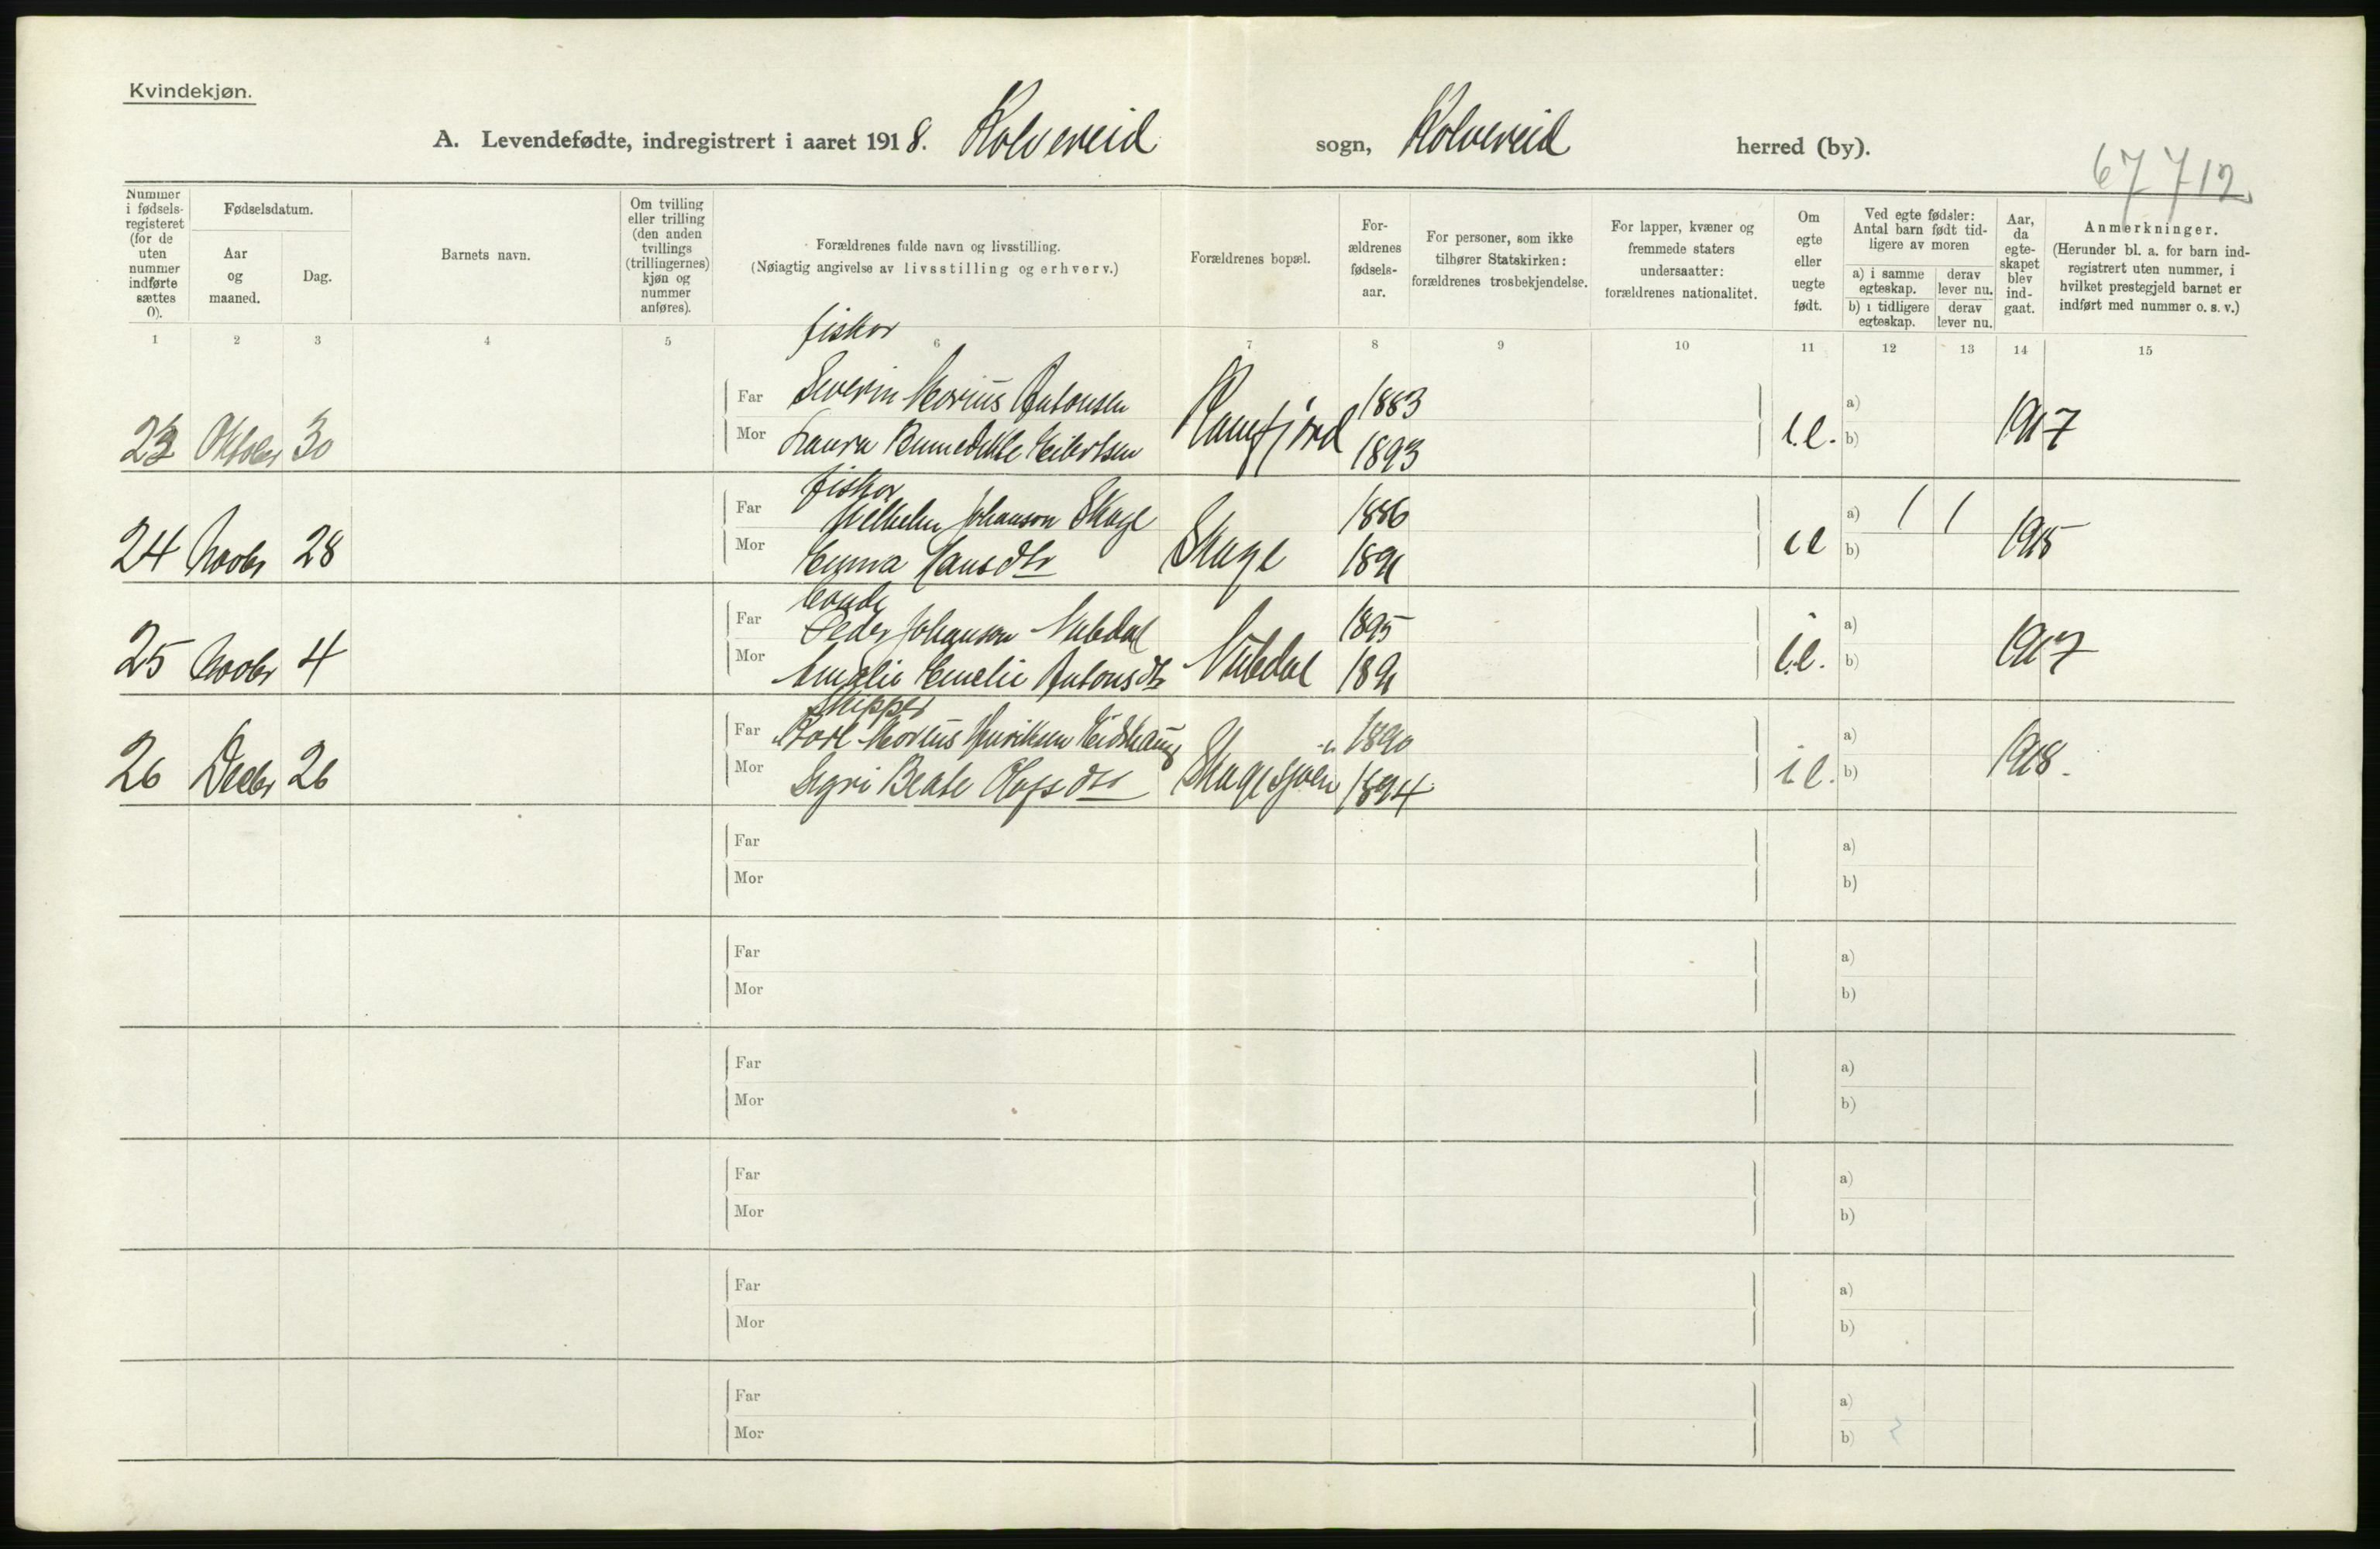 Kvindekjøn.
A. Levendefødte, indregistrert i aaret 1918. Kolvereid sogn, Kolvereid herred (by).
67 712
Nummer i fødsels-registeret (for de uten nummer indførte sættes 0).
Fødselsdatum.
Aar og maaned.
Dag.
Barnets navn.
Om tvilling eller trilling (den anden tvillings (trillingernes) kjøn og nummer anføres).
Forældrenes fulde navn og livsstilling.
(Nøiagtig angivelse av livsstilling og erhverv.)
Forældrenes bopæl.
For-ældrenes fødsels-aar.
For personer, som ikke tilhører Statskirken: forældrenes trosbekjendelse.
For lapper, kvæner og fremmede staters undersaatter: forældrenes nationalitet.
Om egte eller uegte født.
Ved egte fødsler: Antal barn født tid-ligere av moren
a) i samme egteskap.
derav lever nu.
b) i tidligere egteskap.
derav lever nu.
Aar, da egte-skapet blev ind-gaat.
Anmerkninger.
(Herunder bl. a. for barn ind-registrert uten nummer, i hvilket prestegjeld barnet er indført med nummer o. s. v.)
1 2 3 4 5 6 7 8 9 10 11 12 13 14 15
fisker
Far Severin Marius Antonsen 1883 a)
23 Oktober 30 Mor Laura Bennedikte Eilertsen 1893 b) 1917
fisker
Far Vilhelm Johanson Skage 1886 a) 1 1
24 Novbr 28 Mor Emma Hansdtr Skage 1891 b) 1915
Far Peder Johansen 1895 a)
25 Novbr 4 Mor Amalie Emelie Antonsdtr 1891 i.e. b) 1917
Skipper
Far Marius Henriksen Eidshaug 1890 a)
26 Decbr 26 Mor Sigri Beate Olufsdtr 1894 i e. b) 1918.
Far a)
Mor b)
Far a)
Mor b)
Far a)
Mor b)
Far a)
Mor b)
Far a)
Mor b)
Far a)
Mor b)